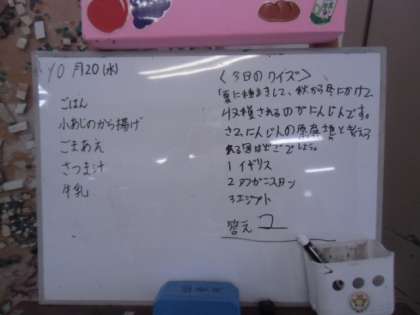 10月20(水)
ごはん
小あじのから揚げ
ごまあえ
さつま汁
牛乳
〈今日のクイズ〉
「夏に種まきして、秋から冬にかけて
収穫されるのがにんじんです。
さて、にんじんの原産地と考えら
れる国はどこでしょう。
1 イギリス
2 アフガニスタン
3 エジプト
答え 2